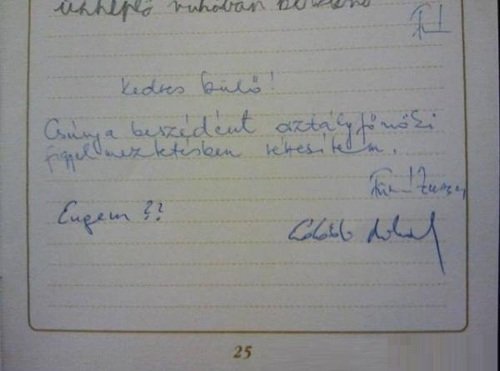 ünneplő ruhában
Kedves Szülő!
Csúnya beszédért osztályfőnöki
figyelmeztetésben részesítem.
Engem ??
25